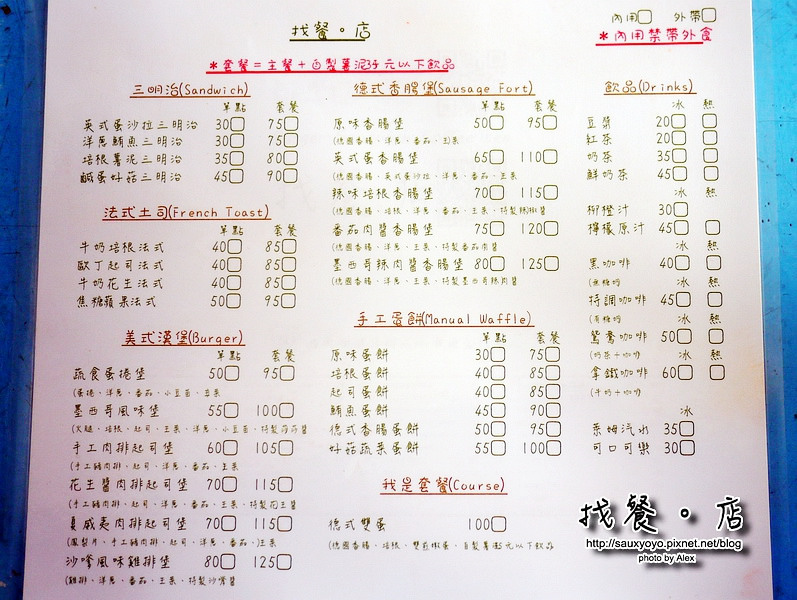 找餐。店
內用 外帶
*內用禁帶外食
*套餐=主餐+自製薯泥35元以下飲品
三明治(Sandwich)
單點 套餐
英式蛋沙拉三明治 30 75
洋蔥鮪魚三明治 30 75
培根薯泥三明治 35 80
鹹蛋好菇三明治 45 90
法式土司(French Toast)
單點 套餐
牛奶培根法式 40 85
歐丁起司法式 40 85
牛奶花生法式 40 85
焦糖蘋果法式 50 95
美式漢堡(Burger)
單點 套餐
蔬食蛋捲堡 50 95
(蛋捲、洋蔥、番茄、小豆苗、生菜
墨西哥風味堡 55 100
(火腿、培根、起司、生菜、洋蔥、小豆苗、特製莎莎醬
手工肉排起司堡 60 105
(手工豬肉排、起司、洋蔥、番茄、生菜
花生醬肉排起司堡 70 115
(手工豬肉排、起司、洋蔥、番茄、生菜、特製花生醬
夏威夷肉排起司堡 70 115
(鳳梨片、手工豬肉排、起司、洋蔥、番茄、生菜
沙嗲風味雞排堡 80 125
(雞排、洋蔥、番茄、生菜、特製沙嗲醬
德式香腸堡(Sausage Fort)
單點 套餐
原味香腸堡 50 95
(德國香腸、洋蔥、番茄、生菜
英式蛋香腸堡 65 110
(德國香腸、英式蛋沙拉、洋蔥、番茄、生菜
辣味培根香腸堡 70 115
(德國香腸、培根、洋蔥、番茄、生菜、特製辣椒醬
番茄肉醬香腸堡 75 120
(德國香腸、洋蔥、生菜、特製番茄肉醬
墨西哥辣肉醬香腸堡 80 125
(德國香腸、洋蔥、生菜、特製墨西哥辣肉醬
手工蛋餅(Manual Waffle)
單點 套餐
原味蛋餅 30 75
培根蛋餅 40 85
起司蛋餅 40 85
鮪魚蛋餅 45 90
德式香腸蛋餅 50 95
好菇蔬菜蛋餅 55 100
我是套餐(Course)
德式雙蛋 100
(德國香腸、培根、雙煎蛋、自製薯泥35元以下飲品
飲品(Drinks)
冰 熱
豆漿 20
紅茶 20
奶茶 35
鮮奶茶 45
冰 熱
柳橙汁 30
檸檬原汁 45
冰 熱
黑咖啡 40
(無糖奶 冰 熱
特調咖啡 45
(有糖奶 冰 熱
鴛鴦咖啡 50
(奶茶+咖啡 冰 熱
拿鐵咖啡 60
(牛奶+咖啡
冰
萊姆汽水 35
可口可樂 30
找餐。店
http://sauxyoyo.pixnet.net/blog
photo by Alex